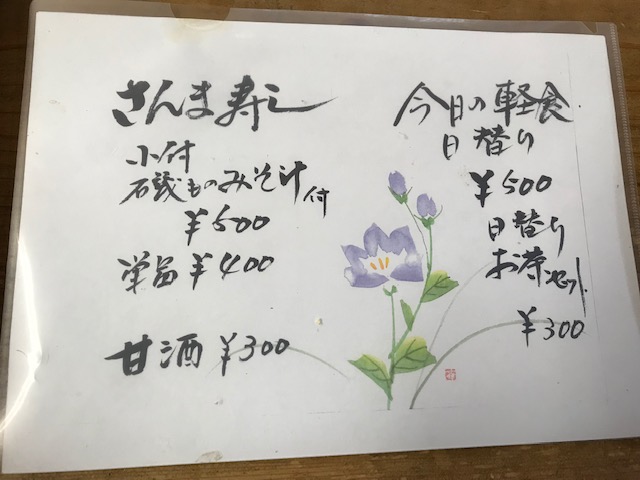 さんま寿し
小付
磯ものみそ汁付
¥500
単品 ¥400
甘酒 ¥300
今日の軽食
日替り
¥500
日替り
お茶セット
¥300